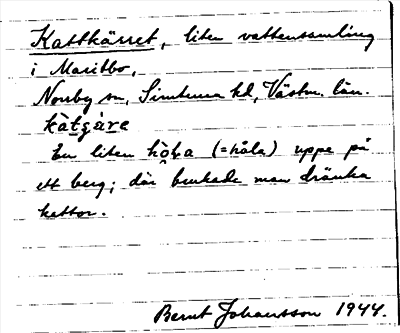 Kattkärret, liten vattensamling
i Maritbo,
Norrby sn, Simtuna hd, Västm. län.
kàtçàre
En liten hòlja (=håla) uppe på
ett berg; där brukade man dränka
kattor.
Bernt Johansson 1944.